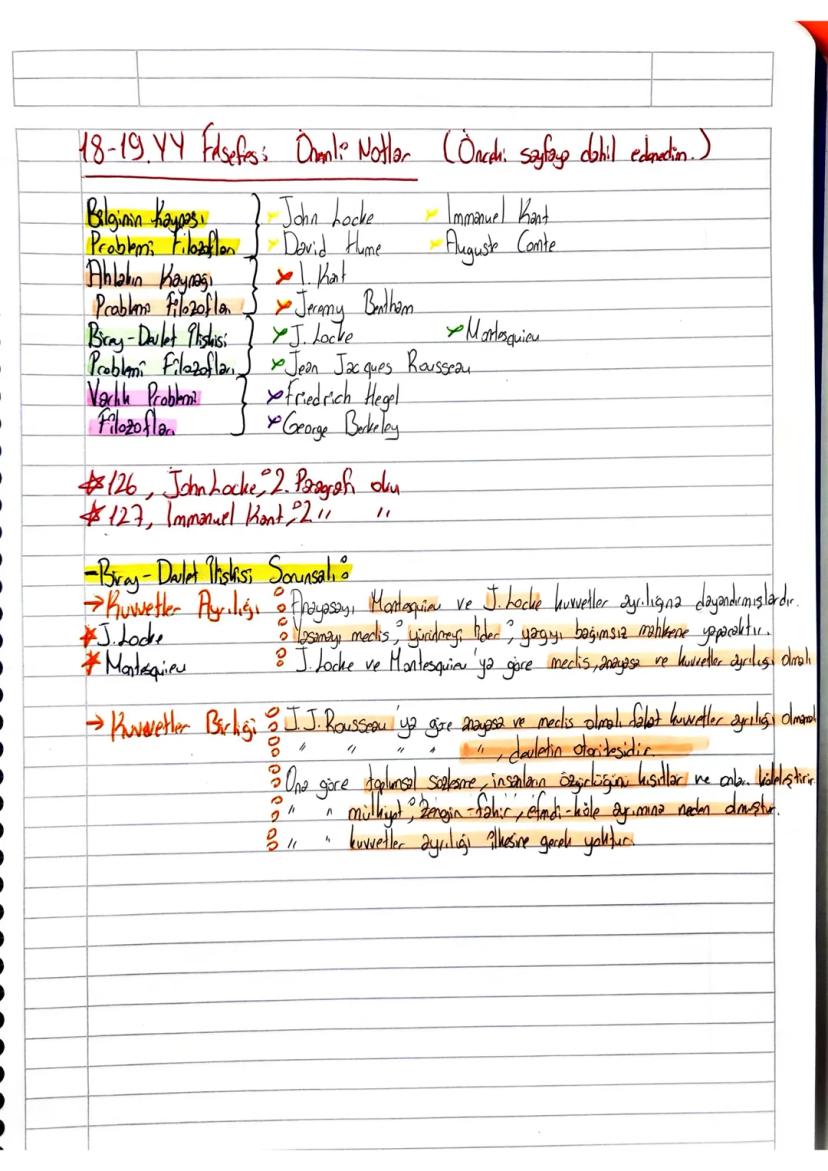 18-19.YY Felsefesi Önemli Notlar (Önceki sayfaya dahil edemedim.)
Bilginin Kaynağı } John Locke Immanuel Kant
Problemi Filozofları David Hume Auguste Comte
Ahlakın Kaynağı } I. Kant
Problemi Filozofları Jeremy Bentham
Birey-Devlet İlişkisi } J. Locke Montesquieu
Problemi Filozofları Jean Jacques Rousseau
Varlık Problemi } Friedrich Hegel
Filozofları George Berkeley
126, John Locke, 2. Paragrafı oku
127, Immanuel Kant, 2 " "
-Birey-Devlet İlişkisi Sorunsalı:
→Kuvvetler Ayrılığı Anayasayı Montesquieu ve J. Locke kuvvetler ayrılığına dayandırmışlardır.
J. Locke Yasamayı meclis; yürütmeyi lider; yargıyı bağımsız mahkeme yapacaktır.
Montesquieu J. Locke ve Montesquieu'ya göre meclis, anayasa ve kuvvetler ayrılığı olmalı
→ Kuvvetler Birliği J.J. Rousseau'ya göre anayasa ve meclis olmalı fakat kuvvetler ayrılığı olmamalı
" " " " ", devletin otoritesidir.
Ona göre toplumsal sözleşme, insanların özgürlüğünü kısıtlar ve onları köleleştirir
" " mülkiyet; zengin-fakir, efendi-köle ayrımına neden olmuştur.
" " kuvvetler ayrılığı ilkesine gerek yoktur.